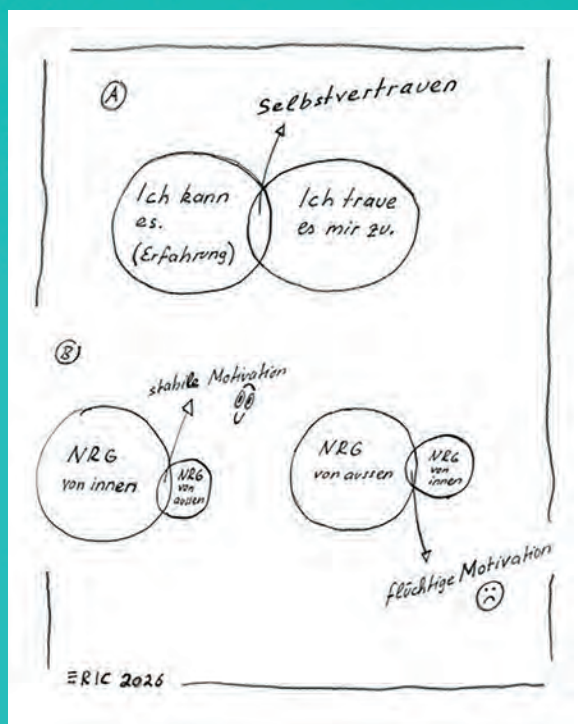 A
Selbstvertrauen
Ich kann
es.
(Erfahrung)
Ich traue
es mir zu.
B
stabile Motivation
NRG
von innen
NRG
von
aussen
NRG
von aussen
NRG
von
innen
flüchtige Motivation
ERIC 2026